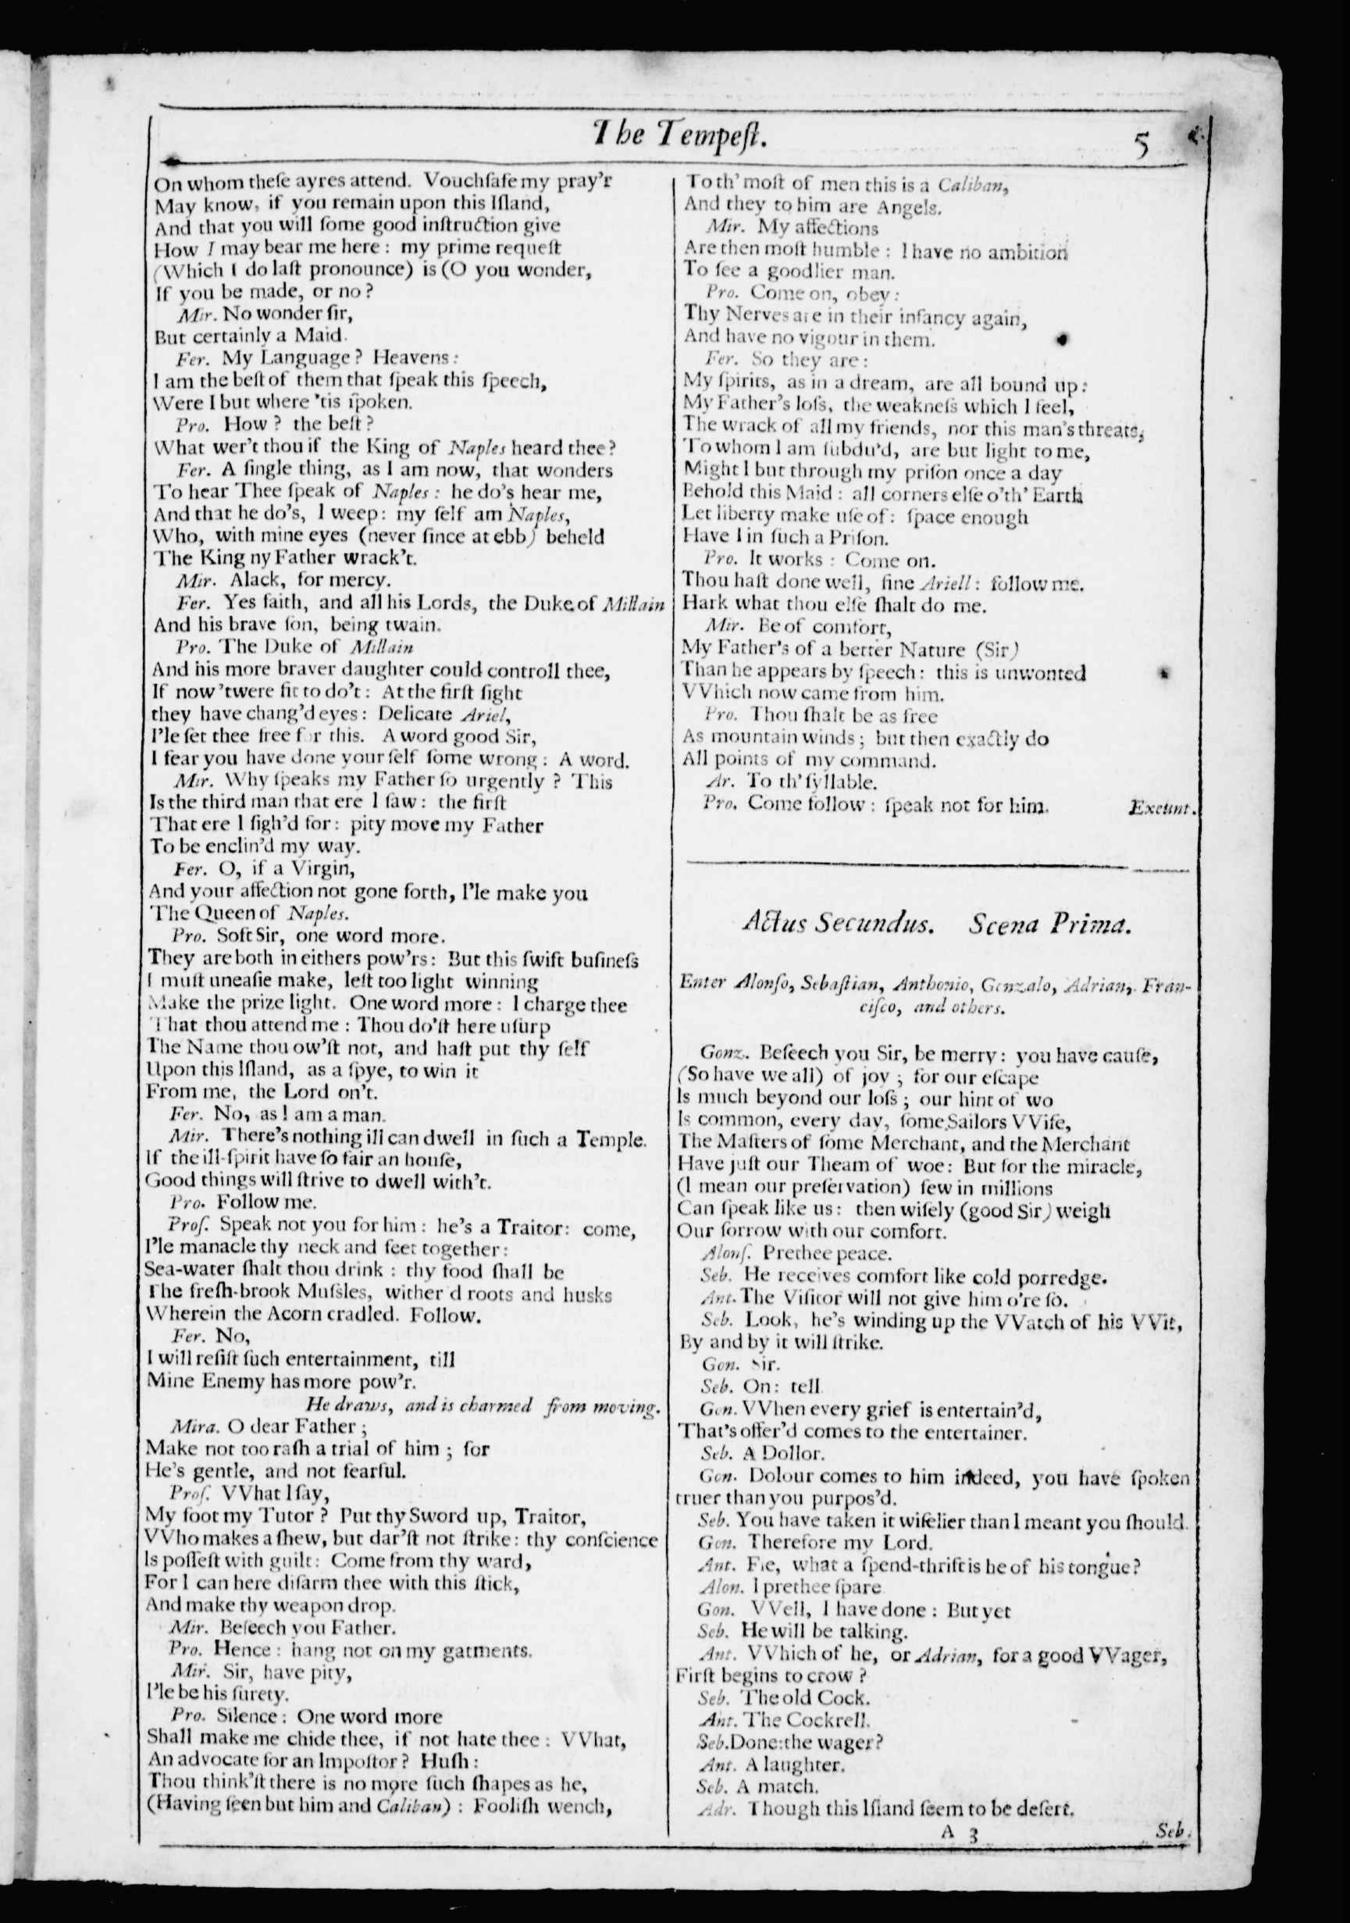 The Tempeſt.
5
On whom theſe ayres attend. Vouchſafe my pray'r
May know, if you remain upon this Iſland,
And that you will ſome good inſtruction give
How I may bear me here: my prime requeſt
(Which I do laſt pronounce) is (O you wonder,
If you be made, or no?
Mir. No wonder ſir,
But certainly a Maid.
Fer. My Language? Heavens:
I am the beſt of them that ſpeak this ſpeech,
Were I but where 'tis ſpoken.
Pro. How? the beſt?
What wer't thou if the King of Naples heard thee?
Fer. A ſingle thing, as I am now, that wonders
To hear Thee ſpeak of Naples: he do's hear me,
And that he do's, I weep: my ſelf am Naples,
Who, with mine eyes (never ſince at ebb) beheld
The King ny Father wrack't.
Mir. Alack, for mercy.
Fer. Yes faith, and all his Lords, the Duke of Millain
And his brave ſon, being twain.
Pro. The Duke of Millain
And his more braver daughter could controll thee,
If now 'twere fit to do't: At the firſt ſight
they have chang'd eyes: Delicate Ariel,
I'le ſet thee free for this. A word good Sir,
I fear you have done your ſelf ſome wrong: A word.
Mir. Why ſpeaks my Father ſo urgently? This
Is the third man that ere I ſaw: the firſt
That ere I ſigh'd for: pity move my Father
To be enclin'd my way.
Fer. O, if a Virgin,
And your affection not gone forth, I'le make you
The Queen of Naples.
Pro. Soft Sir, one word more.
They are both in eithers pow'rs: But this ſwift buſineſs
I muſt uneaſie make, leſt too light winning
Make the prize light. One word more: I charge thee
That thou attend me: Thou do'ſt here uſurp
The Name thou ow'ſt not, and haſt put thy ſelf
Upon this Iſland, as a ſpye, to win it
From me, the Lord on't.
Fer. No, as I am a man.
Mir. There's nothing ill can dwell in ſuch a Temple.
If the ill-ſpirit have ſo fair an houſe,
Good things will ſtrive to dwell with't.
Pro. Follow me.
Proſ. Speak not you for him: he's a Traitor: come,
I'le manacle thy neck and feet together:
Sea-water ſhalt thou drink: thy food ſhall be
The freſh-brook Muſsles, wither'd roots and husks
Wherein the Acorn cradled. Follow.
Fer. No,
I will reſiſt ſuch entertainment, till
Mine Enemy has more pow'r.
He draws, and is charmed from moving.
Mira. O dear Father;
Make not too raſh a trial of him; for
He's gentle, and not fearful.
Proſ. VVhat I ſay,
My foot my Tutor? Put thy Sword up, Traitor,
VVho makes a ſhew, but dar'ſt not ſtrike: thy conſcience
Is poſſeſt with guilt: Come from thy ward,
For I can here diſarm thee with this ſtick,
And make thy weapon drop.
Mir. Beſeech you Father.
Pro. Hence: hang not on my garments.
Mir. Sir, have pity,
I'le be his ſurety.
Pro. Silence: One word more
Shall make me chide thee, if not hate thee: VVhat,
An advocate for an Impoſtor? Huſh:
Thou think'ſt there is no more ſuch ſhapes as he,
(Having ſeen but him and Caliban): Fooliſh wench,
To th' moſt of men this is a Caliban,
And they to him are Angels.
Mir. My affections
Are then moſt humble: I have no ambition
To ſee a goodlier man.
Pro. Come on, obey:
Thy Nerves are in their infancy again,
And have no vigour in them.
Fer. So they are:
My ſpirits, as in a dream, are all bound up:
My Father's loſs, the weakneſs which I feel,
The wrack of all my friends, nor this man's threats,
To whom I am ſubdu'd, are but light to me,
Might I but through my priſon once a day
Behold this Maid: all corners elſe o'th' Earth
Let liberty make uſe of: ſpace enough
Have I in ſuch a Priſon.
Pro. It works: Come on.
Thou haſt done well, fine Ariell: follow me.
Hark what thou elſe ſhalt do me.
Mir. Be of comfort,
My Father's of a better Nature (Sir)
Than he appears by ſpeech: this is unwonted
VVhich now came from him.
Pro. Thou ſhalt be as free
As mountain winds; but then exactly do
All points of my command.
Ar. To th' ſyllable.
Pro. Come follow: ſpeak not for him. Exeunt.
Actus Secundus. Scena Prima.
Enter Alonſo, Sebaſtian, Anthonio, Gonzalo, Adrian, Fran-
ciſco, and others.
Gonz. Beſeech you Sir, be merry: you have cauſe,
(So have we all) of joy; for our eſcape
Is much beyond our loſs; our hint of wo
Is common, every day, ſome Sailors VVife,
The Maſters of ſome Merchant, and the Merchant
Have juſt our Theam of woe: But for the miracle,
(I mean our preſervation) few in millions
Can ſpeak like us: then wiſely (good Sir) weigh
Our ſorrow with our comfort.
Alonſ. Prethee peace.
Seb. He receives comfort like cold porredge.
Ant. The Viſitor will not give him o're ſo.
Seb. Look, he's winding up the VVatch of his VVit,
By and by it will ſtrike.
Gon. Sir.
Seb. On: tell
Gon. VVhen every grief is entertain'd,
That's offer'd comes to the entertainer.
Seb. A Dollor.
Gon. Dolour comes to him indeed, you have ſpoken
truer than you purpos'd.
Seb. You have taken it wiſelier than I meant you ſhould.
Gon. Therefore my Lord.
Ant. Fie, what a ſpend-thrift is he of his tongue?
Alon. I prethee ſpare
Gon. VVell, I have done: But yet
Seb. He will be talking.
Ant. VVhich of he, or Adrian, for a good VVager,
Firſt begins to crow?
Seb. The old Cock.
Ant. The Cockrell.
Seb. Done: the wager?
Ant. A laughter.
Seb. A match.
Adr. Though this Iſland ſeem to be deſert.
A 3
Seb.